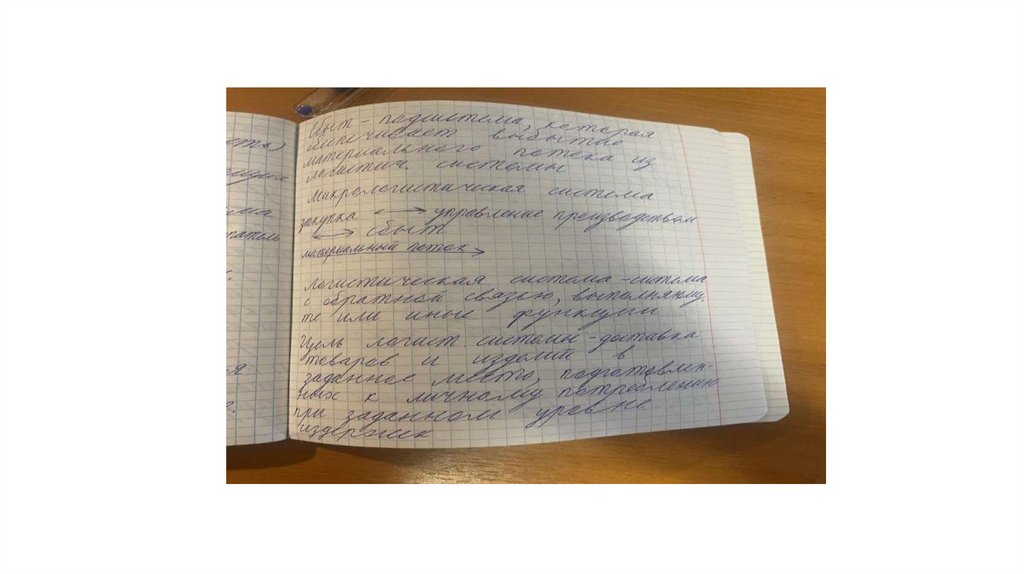 ета)
ма
ватель
я
г.
Сбыт - подсистема, которая
обеспечивает выбытие
материального потока из
логистич. системы
Микрологистическая система
закупка ⟷ управление производством
⟷ сбыт
материальный поток →
Логистическая система - система
с обратной связью, выполняющ.
те или иные функции
Цель логист. системы - доставка
товаров и изделий в
заданное место, подготовлен-
ных к личному потреблению
при заданном уровне
издержек